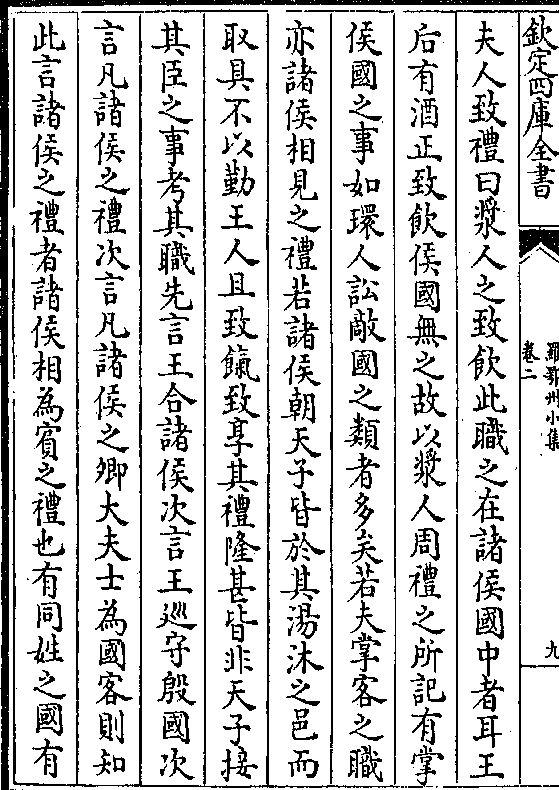 欽定四庫全書
羅鄂州小集
卷二
九
夫人致禮曰漿人之致飲此職之在諸侯國中者耳王
后有酒正致飲侯國無之故以漿人周禮之所記有掌
侯國之事如環人訟敵國之類者多矣若夫掌客之職
亦諸侯相見之禮若諸侯朝天子皆於其湯沐之邑而
取具不以勤王人且致餼致享其禮隆甚皆非天子接
其臣之事考其職先言王合諸侯次言王巡守殷國次
言凡諸侯之禮次言凡諸侯之卿大夫士為國客則知
此言諸侯之禮者諸侯相為賓之禮也有同姓之國有